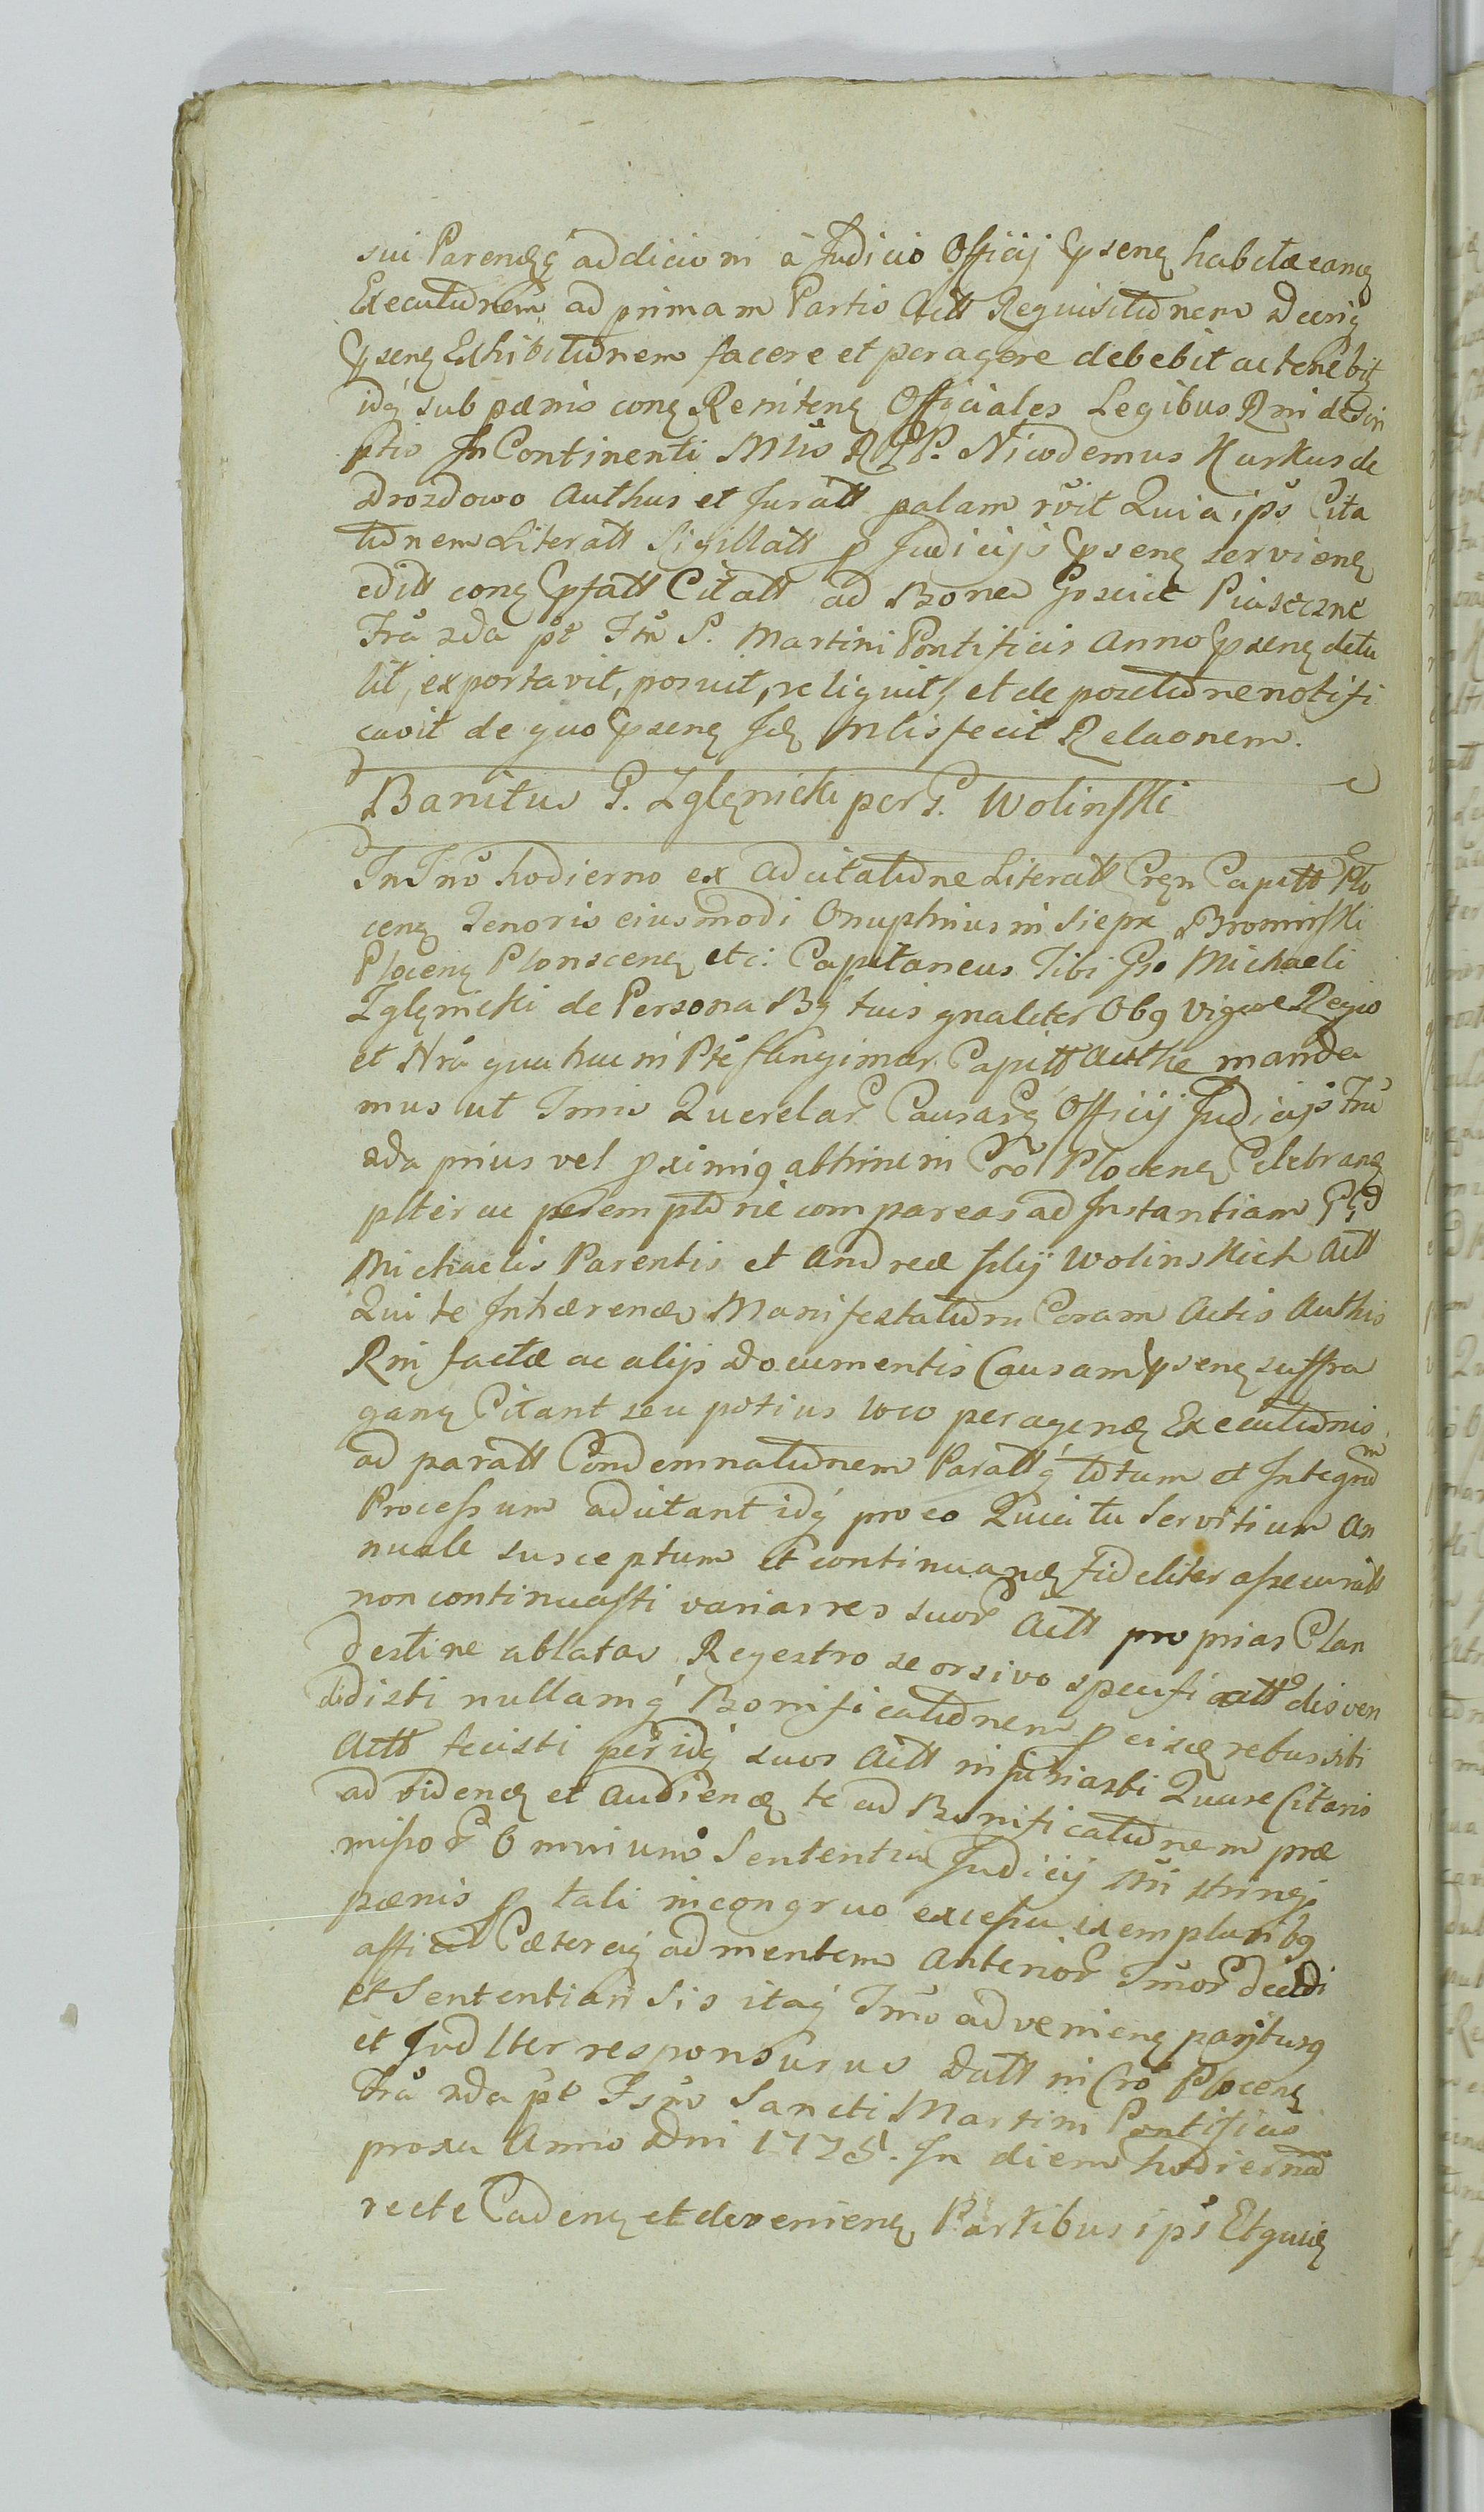 sui Parendęq́ addicioni à Judicio Officij Pñsenς habitæ eamς
Executionem ad primam Partis Actt Requisitionem Decriq́
Pñsenς Exhibitionem facere et peragere debebit ac tenebit
idq́ sub pœnis conς Renitenς Officiales Legibus Rni descri
ptis In Continenti Mlis RGP. Nicodemus Kurkus de
Drozdowo Authus et Juratt palam rẽit Quia ips̃ Cita
tionem Literatt Sigillatt p Judicijs Pñsenς servienς
editt conς Pfatt Citatt ad Bona Goscice Piaseczne
Fra 2da pt Ftũ S. Martini Pontificis Anno Pñsenς detu
lit, exportavit, posuit, reliquit, et de positione notifi
cavit de quo Pñsenς Jdς Mlis fecit Relaõnem.
Banitus P. Zglęnicki per P. Wolinski
In Tñõ hodierno ex Adcitatione Literatt Cręn Capitt Plo
cenς Tenoris eiusmodi Onuphrius in Siepr Brominski
Plocenς Plonscenς etc: Capitaneus Tibi Gso Michaeli
Zglęnicki de Persona Bq́ tuis gnaliter Obς vigore Regio
et Nrã qua hac in Pte fungimur Capitt Authe manda
mus ut Tmis Querelar Causarq́ Officij Judicijs Frũ
2da prius vel pximiς abhinc in Crõ Plocenς Celebranς
plter ac peremptorie compareas ad Instantiam G
Michaelis Parentis et Andreæ filij Wolinskich Actt
Qui te Inhærendς Manifestationi Coram Actis Authis
Rni factæ ac alijs Documentis Causam Pñsenς suffra
ganς Citant seu potius loco peragendς Executionis
ad paratt Condemnationem Parattq́ totum et Integrum
Processum adcitant idq́ pro eo Quia tu Servitium An
nuale susceptum et continuandς fideliter assecuratt
non continuasti varias res suor Actt proprias Clan
destine ablatas Regestro seorsivo specificatt disven
didisti nullamq́ Bonificationem p eisdς rebus sibi
Actt fecisti per idq́ suos Actt injuriasti Quare Citaris
ad videndς et Audiendς te ad Bonificationem præ
missor Omnium Sententia Judicij Nri stringi
pœnis p tali incongruo excessu exemplaribς
affici Cæteraq́ ad mentem Anterior Tmor decidi
et Sententiari Sis itaq́ Tmo advenienς pariturς
et Judlter responsurus Datt in Crõ Plocenς
Fra 2da pt Fstũ Sancti Martini Pontificis
proxa Anno Dni 1725. In diem hodiernã
recte Cadenς et devenienς Partibus ips̃ Etquidς